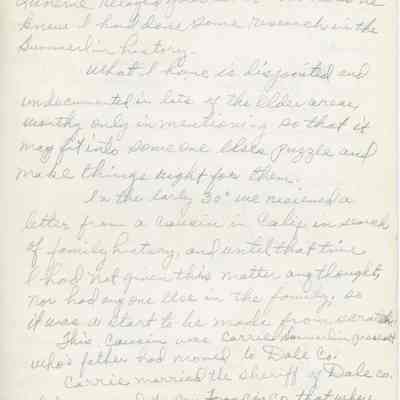 knew I had done some research in the
Summerlin history.
What I have is disjointed and
undocumented in lots of the older areas,
worthy only in mentioning so that it
may fit into someone elses puzzle and
make things right for them.
In the early 30s we recieved a
letter from a cousin in Calif in search
of family history, and until that time
I had not given this matter any thought,
nor had anyone else in the family, so
it was a start to be made from scratch.
This cousin was Carrie Summerlin
who's father had moved to Dale Co.
Carrie married the sheriff of Dale co.
that where